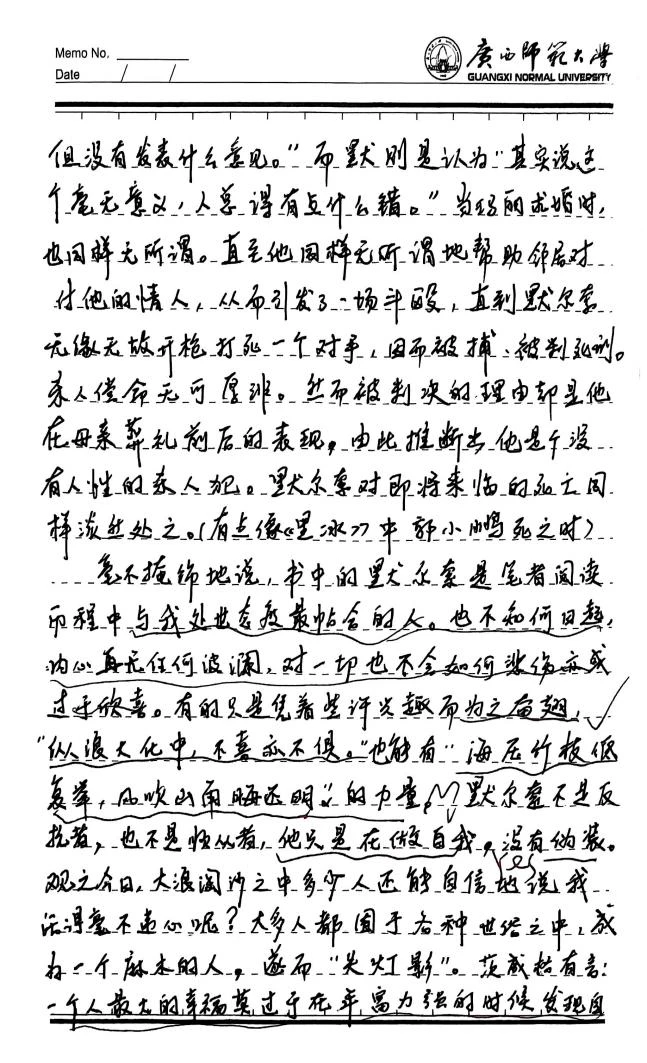 Memo No.
Date / /
廣西師範大學
GUANGXI NORMAL UNIVERSITY
但没有发表什么意见。"而默则是认为"其实说这
个毫无意义,人总得有点什么错。"当玛丽求婚时,
也同样无所谓。直至他同样无所谓地帮助邻居对
付他的情人,从而引发了一场斗殴,直到默尔索
无缘无故开枪打死一个对手,因而被捕、被判死刑。
杀人偿命无可厚非。然而被判决的理由却是他
在母亲葬礼前后的表现,由此推断出他是个没
有人性的杀人犯。默尔索对即将来临的死亡同
样淡然处之。(有点像《黑冰》中郭小鹏死之时)
毫不掩饰地说,书中的默尔索是笔者阅读
历程中与我处世态度最帖合的人。也不知何日起,
内心再无任何波澜,对一切也不会如何悲伤亦或
过于欣喜。有的只是凭着些许兴趣而为之奋翅,
"纵浪大化中,不喜亦不惧。"也能有"海
低
复举,风吹山雨晦还明"的力量,默尔索不是反
抗者,也不是顺从者,他只是在做自我,没有伪装。
观之今日,大浪淘沙之中多少人还能自信地说我
活得毫不违心呢?大多人都囿于各种世俗之中,成
为一个麻木的人,遂而"失灯影"。茨威格有言:
一个人最大的幸福莫过于在年富力强的时候发现自